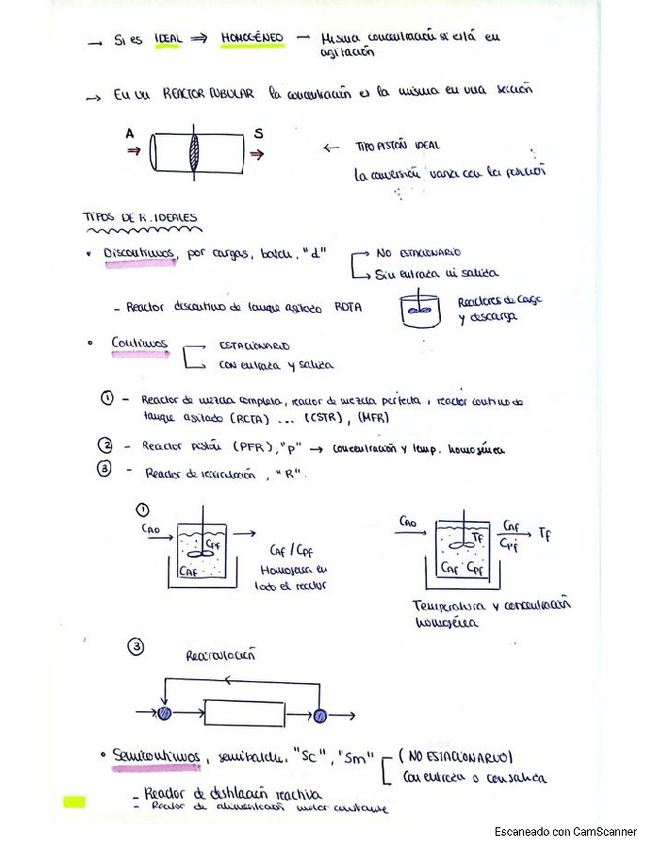 → Si es IDEAL ⇒ HOMOGÉNEO – Misma concentración si está en
agitación
→ En un REACTOR TUBULAR la concentración es la misma en una sección
A
S
← TIPO PISTÓN IDEAL
la conversión varía con la posición
TIPOS DE R. IDEALES
• Discontinuos, por cargas, batch, "d"
→ NO ESTACIONARIO
→ Sin entrada ni salida
– Reactor discontinuo de tanque agitado RDTA
Reactores de carga
y descarga
• Continuos
→ ESTACIONARIO
→ CON entrada y salida
① – Reactor de mezcla completa, reactor de mezcla perfecta, reactor continuo de
tanque agitado (RCTA) ... (CSTR), (MFR)
② – Reactor pistón (PFR), "P" → concentración y temp. homogénea
③ – Reactor de recirculación, "R".
①
CAO
CPF
CAF
CAF / CPF
Homogénea en
todo el reactor
CAO
TF
CAF CPF
CAF
CPF
TF
Temperatura y concentración
homogénea
③
Recirculación
• Semicontinuos, semibatch, "Sc", "Sm"
(NO ESTACIONARIO)
Con entrada o con salida
– Reactor de destilación reactiva
– Reactor de alimentación
Escaneado con CamScanner